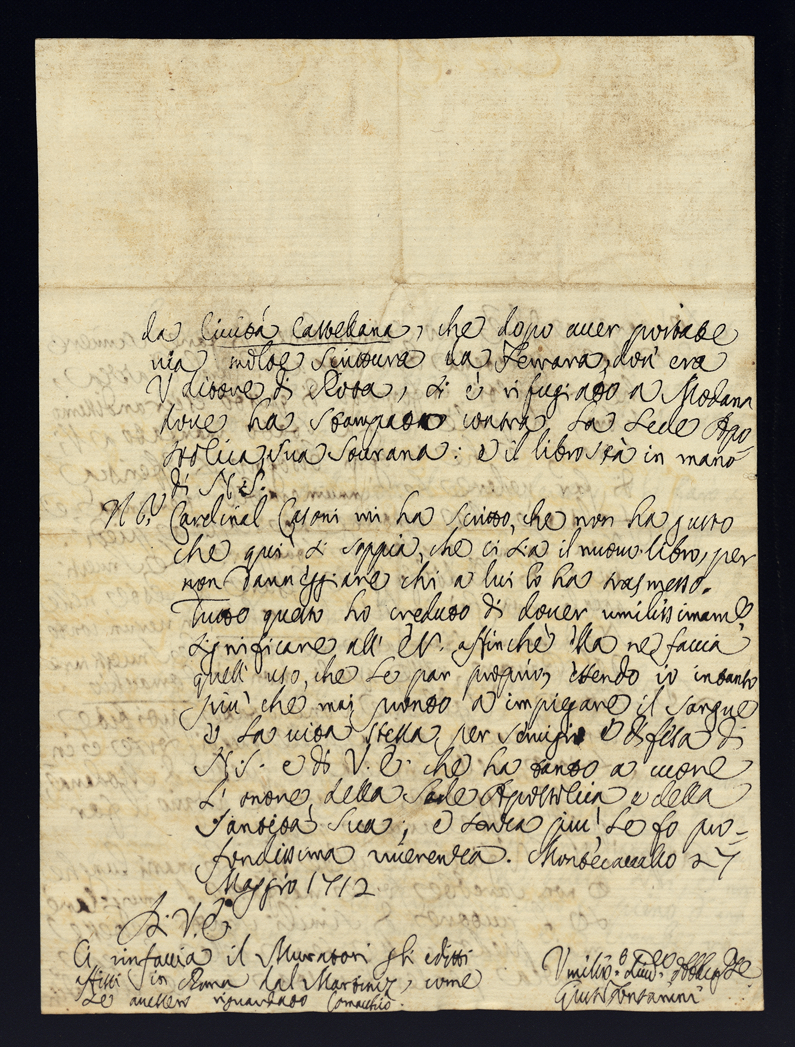 da Cività Castellana, che dopo aver portate
via molte scritture da Ferrara, dov' era
Uditore di Rota, si è rifugiato a Modana
dove ha stampato contra la Sede Apo-
stolica, sua Sovrana: e il libro stà in mano
di N.S.
Cardinal Casoni mi ha scritto, che non ha gusto
che qui si sappia, che ci sia il nuovo libro, per
non danneggiare chi a lui lo ha trasmesso.
Tutto questo ho creduto di dover umilissimam.e
significare all' E.V. affinchè ella ne faccia
quell' uso, che le par proprio, essendo io intanto
più che mai pronto a impiegare il sangue
e la vita stessa per servigio e difesa di
N.S. e di V.E. che ha tanto a cuore
l' onore della Sede Apostolica e della
Santità Sua; e senza più le fo pro-
fondissima riverenza. Montecavallo 27
Maggio 1712
Di V.E.
Ci rinfaccia il Muratori gli editti
affissi in Roma dal Martinez, come
se avessero riguardato Comacchio.
Giusto Fontanini